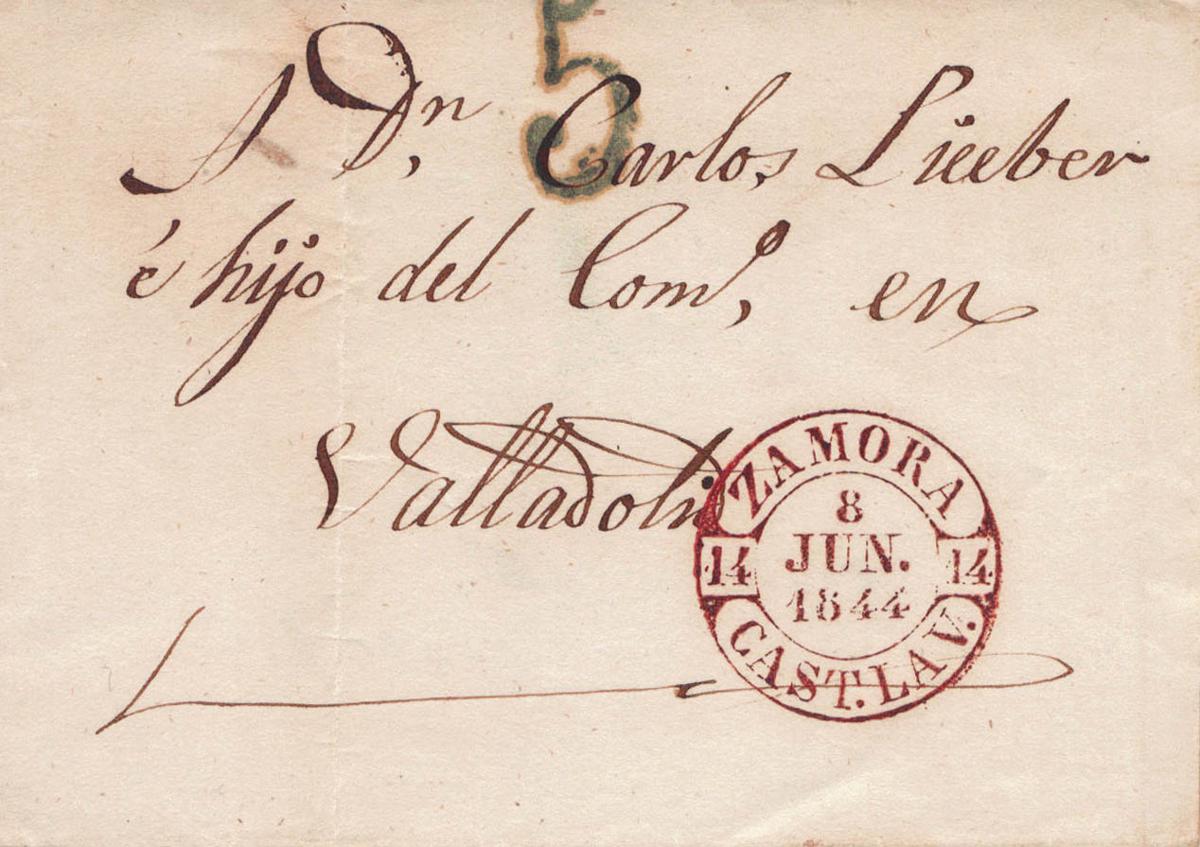 5
A Dn. Carlos Lieeber
é hijo del Como, en
Valladolid
ZAMORA
8
14 JUN. 14
1844
CAST. LA V.